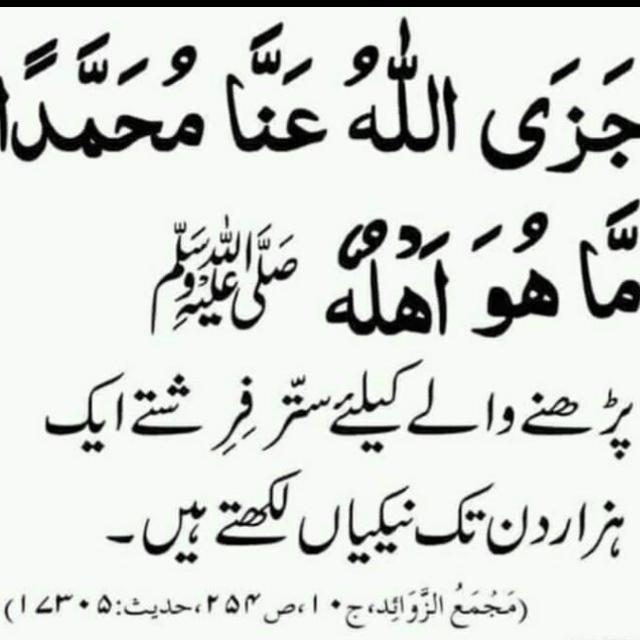 جَزَی اللّٰهُ عَنَّا مُحَمَّدًا
مَّا هُوَ اَهْلُهٗ ﷺ
پڑھنے والے کیلئے ستّر فِرِشتے ایک
ہزار دن تک نیکیاں لکھتے ہیں۔
(مَجْمَعُ الزَّوَائِد، ج۱۰، ص۲۵۴، حدیث:۱۷۳۰۵)